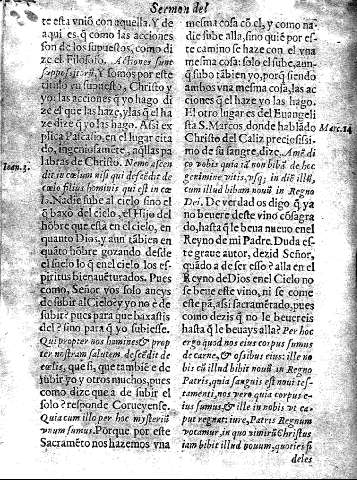 Sermon del
te esta vnió con aquella. Y de
aqui es q̃ como las acciones
son de los supuestos, como di
ze el Filosofo. Actiones sunt
suppositorũ, Y somos por este
titulo vn supuesto, Christo y
yo: las acciones q̃ yo hago di
ze el que las haze, y las q̃ el ha
ze dize q̃ yo las hago. Assi ex
plica Palcasio, en el lugar cita
do, ingeniosamẽte, aq̃llas pa
labras de Christo. Nemo ascen
dit in cœlum nisi qui descẽdit de
cœlo filius hominis qui est in cœ
lo. Nadie sube al cielo sino el
q̃ baxo del cielo, el Hijo del
hõbre que està en el cielo, en
quanto Dios, y aun tãbien en
quãto hõbre gozando desde
el suelo lo q̃ en el cielo los es-
piritus bienauẽturados. Pues
como, Señor vos solo aueys
de subir al Cielo e yo no è de
subir? pues para que baxastis
del? sino para q̃ yo subiesse.
Qui propter nos homines & prop
ter nostram salutem descẽdit de
cœlis, que si, que tambiẽ e de
subir yo y otros muchos, pues
como dize que a de subir el
solo? responde Corueyense.
Quia cum illo per hoc mysteriũ
vnum sumus. Porque por este
Sacramẽto nos hazemos vna
Ioan. 3.
mesma cosa cõ el, y como na-
die sube alla, sino quiẽ por es-
te camino se haze con el vna
mesma cosa: solo el sube, aun-
q̃ subo tãbien yo, porq̃ siendo
ambos vna mesma cosa, las ac
ciones q̃ el haze yo las hago.
El otro lugar es del Euangeli
sta S. Marcos donde hablãdo
Christo del Caliz preciosissi-
mo de su sangre, dize, Amẽ di
co vobis quia iã non bibã de hoc
gerimine vitis, vsq; in diẽ illũ,
cum illud bibam nouũ in Regno
Dei. De verdad os digo q̃ ya
no beuere deste vino cõsagra
do, hasta q̃ le beua nueuo en el
Reyno de mi Padre. Duda es-
te graue autor, dezid Señor,
quãdo a de ser esso? alla en el
Reyno del Dios en el Cielo no
se beue este vino, ni se come
este pã, assi sacramẽtado, pues
como dezis q̃ no le beuereis
hasta q̃ le beuays alla? Per hoc
ergo quod nos eius corpus sumus
de carne, & ossibus eius: ille no
bis cũ illud bibit nouũ in Regno
Patris, quia sanguis est noui tes-
tamenti, nos vero quia corpus e-
ius sumus, & ille in nobis vt ca-
put regnat: iure, Patris Regnum
vocamur, in quo nimirũ Christus
iam bibit illud nouum, quoties si
deles
Marc. 14